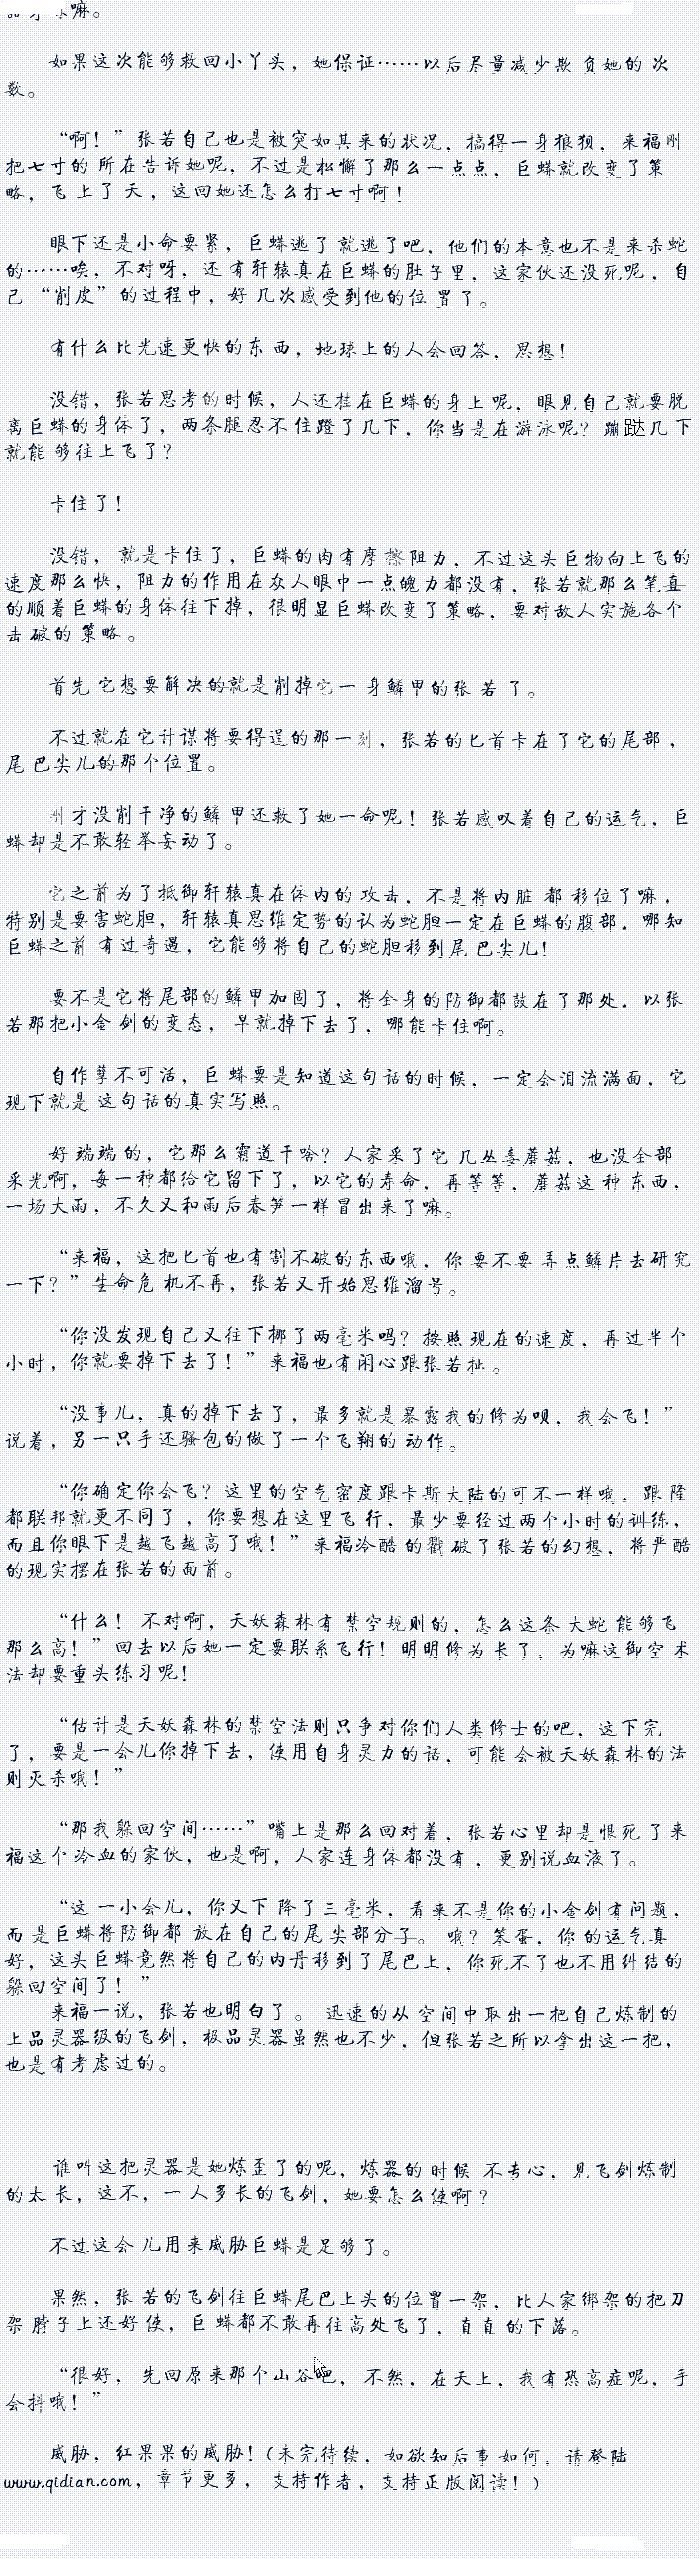 嘛。
如果这次能够救回小丫头，她保证……以后尽量减少欺负她的次
数。
“啊！”张若自己也是被突如其来的状况，搞得一身狼狈，来福刚
把七寸的所在告诉她呢，不过是松懈了那么一点点，巨蟒就改变了策
略，飞上了天，这回她还怎么打七寸啊！
眼下还是小命要紧，巨蟒逃了就逃了吧，他们的本意也不是来杀蛇
的……唉，不对呀，还有轩辕真在巨蟒的肚子里，这家伙还没死呢，自
己“削皮”的过程中，好几次感受到他的位置了。
有什么比光速更快的东西，地球上的人会回答，思想！
没错，张若思考的时候，人还挂在巨蟒的身上呢，眼见自己就要脱
离巨蟒的身体了，两条腿忍不住蹬了几下，你当是在游泳呢？蹦跶几下
就能够往上飞了？
卡住了！
没错，就是卡住了，巨蟒的肉有摩擦阻力，不过这头巨物向上飞的
速度那么快，阻力的作用在众人眼中一点魄力都没有，张若就那么笔直
的顺着巨蟒的身体往下掉，很明显巨蟒改变了策略，要对敌人实施各个
击破的策略。
首先它想要解决的就是削掉它一身鳞甲的张若了。
不过就在它计谋将要得逞的那一刻，张若的匕首卡在了它的尾部，
尾巴尖儿的那个位置。
刚才没削干净的鳞甲还救了她一命呢！张若感叹着自己的运气，巨
蟒却是不敢轻举妄动了。
它之前为了抵御轩辕真在体内的攻击，不是将内脏都移位了嘛，
特别是要害蛇胆，轩辕真思维定势的认为蛇胆一定在巨蟒的腹部，哪知
巨蟒之前有过奇遇，它能够将自己的蛇胆移到尾巴尖儿！
要不是它将尾部的鳞甲加固了，将全身的防御都放在了那处，以张
若那把小金剑的变态，早就掉下去了，哪能卡住啊。
自作孽不可活，巨蟒要是知道这句话的时候，一定会泪流满面，它
现下就是这句话的真实写照。
好端端的，它那么霸道干啥？人家采了它几丛毒蘑菇，也没全部
采光啊，每一种都给它留下了，以它的寿命，再等等，蘑菇这种东西，
一场大雨，不久又和雨后春笋一样冒出来了嘛。
“来福，这把匕首也有割不破的东西哦，你要不要弄点鳞片去研究
一下？”生命危机不再，张若又开始思维溜号。
“你没发现自己又往下挪了两毫米吗？按照现在的速度，再过半个
小时，你就要掉下去了！”来福也有闲心跟张若扯。
“没事儿，真的掉下去了，最多就是暴露我的修为呗，我会飞！”
说着，另一只手还骚包的做了一个飞翔的动作。
“你确定你会飞？这里的空气密度跟卡斯大陆的可不一样哦，跟隆
都联邦就更不同了，你要想在这里飞行，最少要经过两个小时的训练，
而且你眼下是越飞越高了哦！”来福冷酷的戳破了张若的幻想，将严酷
的现实摆在张若的面前。
“什么！不对啊，天妖森林有禁空规则的，怎么这条大蛇能够飞
那么高！”回去以后她一定要联系飞行！明明修为长了，为嘛这御空术
法却要重头练习呢！
“估计是天妖森林的禁空法则只争对你们人类修士的吧，这下完
了，要是一会儿你掉下去，使用自身灵力的话，可能会被天妖森林的法
则灭杀哦！”
“那我躲回空间……”嘴上是那么回对着，张若心里却是恨死了来
福这个冷血的家伙，也是啊，人家连身体都没有，更别说血液了。
“这一小会儿，你又下降了三毫米，看来不是你的小金剑有问题，
而是巨蟒将防御都放在自己的尾尖部分子。哦？笨蛋，你的运气真
好，这头巨蟒竟然将自己的内丹移到了尾巴上，你死不了也不用纠结的
躲回空间了！”
来福一说，张若也明白了。迅速的从空间中取出一把自己炼制的
上品灵器级的飞剑，极品灵器虽然也不少，但张若之所以拿出这一把，
也是有考虑过的。
谁叫这把灵器是她炼歪了的呢，炼器的时候不专心，见飞剑炼制
的太长，这不，一人多长的飞剑，她要怎么使啊？
不过这会儿用来威胁巨蟒是足够了。
果然，张若的飞剑往巨蟒尾巴上头的位置一架，比人家绑架的把刀
架脖子上还好使，巨蟒都不敢再往高处飞了，直直的下落。
“很好，先回原来那个山谷吧，不然，在天上，我有恐高症呢，手
会抖哦！”
威胁，红果果的威胁！（未完待续，如欲知后事如何，请登陆
www.qidian.com，章节更多，支持作者，支持正版阅读！）